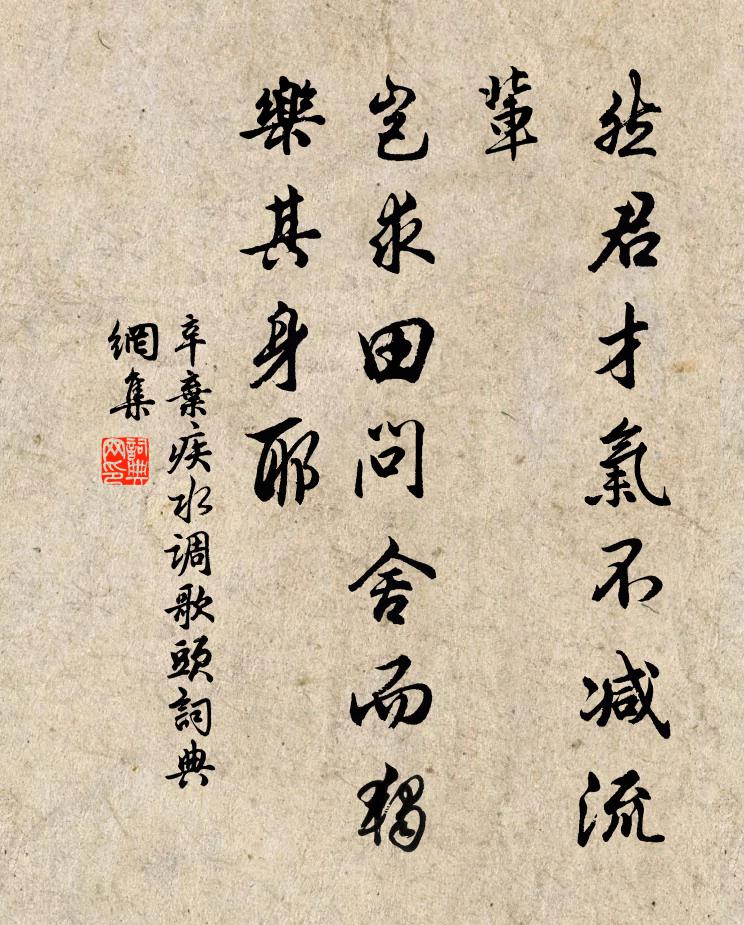 然君才氣不减流
輩
岂求田问舍而独
樂其身耶
辛棄疾水调歌頭詞典
網集
詞典
网印